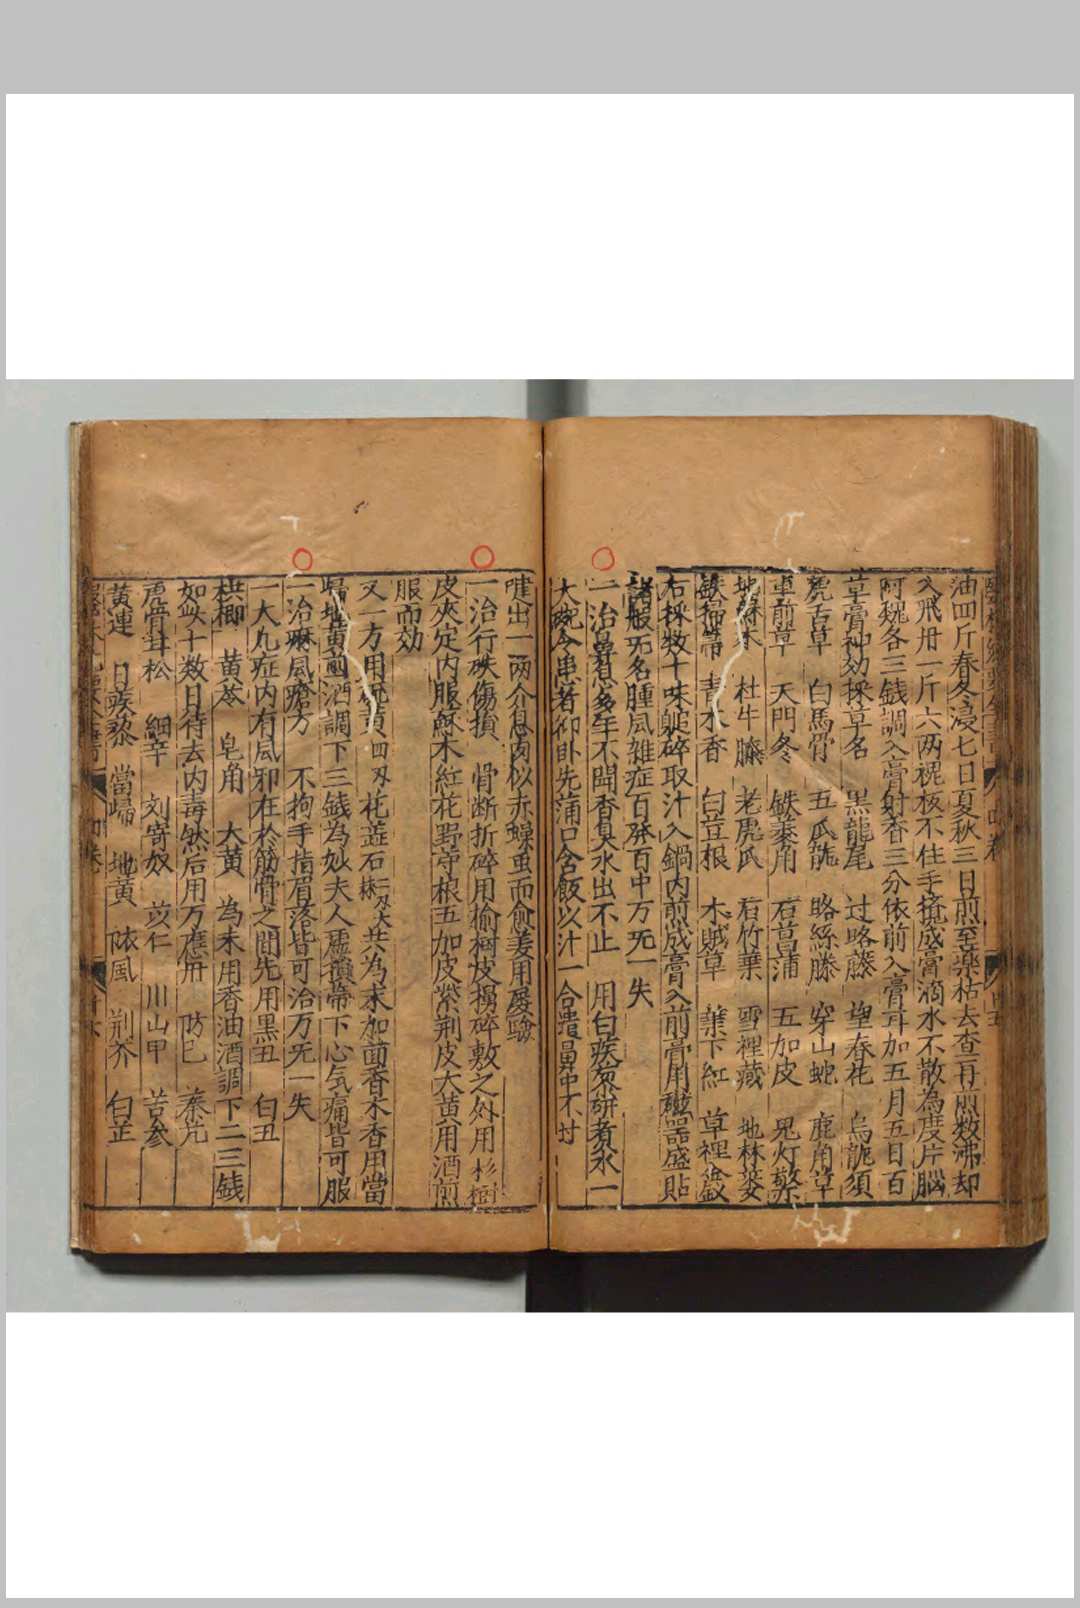 油四斤春冬浸七日夏秋三日煎至藥枯去查再煎数沸却
入飛丹一斤六两槐枝不住手攪成膏滴水不散為度片腦
阿魏各三錢調入膏射香三分依前入膏耳加五月五日百
草膏神効採草名　黑龍尾　过路藤　望春花　烏龍須
虎舌草　白馬骨　五爪龍　略絲藤　穿山蛇　鹿角草
車前草　天門冬　鉄菱角　石菖蒲　五加皮　見灯檠
地蘇木　杜牛膝　老虎爪　石竹葉　雪裡藏　地林婆
鉄掃帚　青木香　白豆根　木賊草　葉下紅　草裡金釵
右採数十味搥碎取汁入鍋内煎成膏入前膏用磁器盛貼
諸般无名腫風雜症百發百中万无一失
一治鼻息多年不聞香臭水出不止　用白蒺䔧研煮水一
大碗令患者仰卧先蒲口含飯以汁一合灌鼻中不过
嚏出一两介息肉似赤蠅虫而愈姜用屡驗
一治行硃傷損　骨断折碎用榆樹皮搗碎敷之外用杉樹
皮夾定内服蘇木紅花野苧根五加皮紫荆皮大黄用酒煎
服而効
又一方用硫黄四刄花蕋石二刄大共為末加茴香木香用當
歸地黄煎酒調下三錢為妙夫人虚損帶下心气痛皆可服
一治痳風瘡方　不拘手指眉落皆可治万无一失
一大凢症内有風邪在於筋骨之間先用黒丑　白丑
梹榔　黄苓　皂角　大黄　為末用香油酒調下二三錢
如些十数日待去内毒然后用万應丹　防已　蓁艽
鹿茸松　細辛　刘寄奴　苡仁　川山甲　苦参
黄連　白蒺藜　當歸　地黄　防風　荆芥　白芷